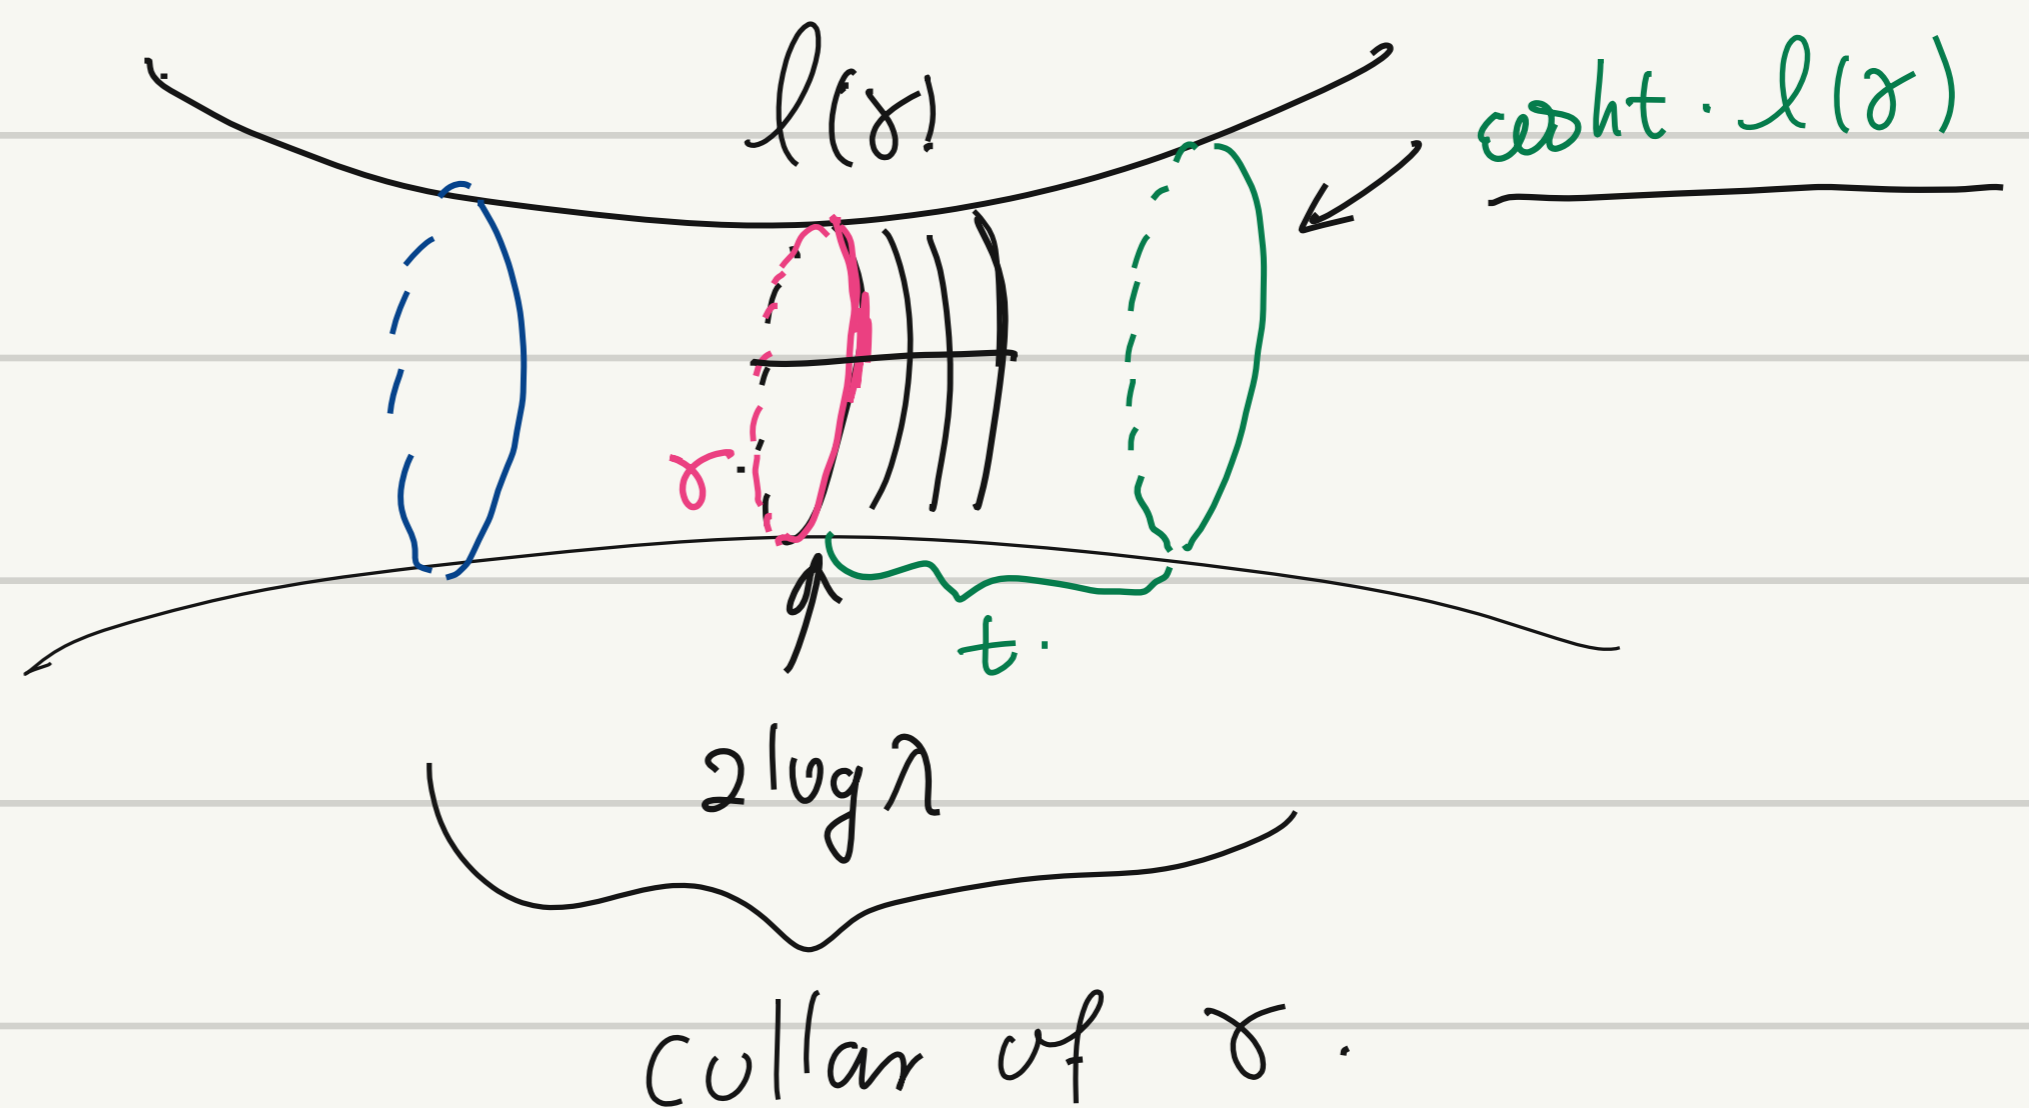 l(γ)
cosht · l(γ)
γ.
t.
2logλ
collar of γ.